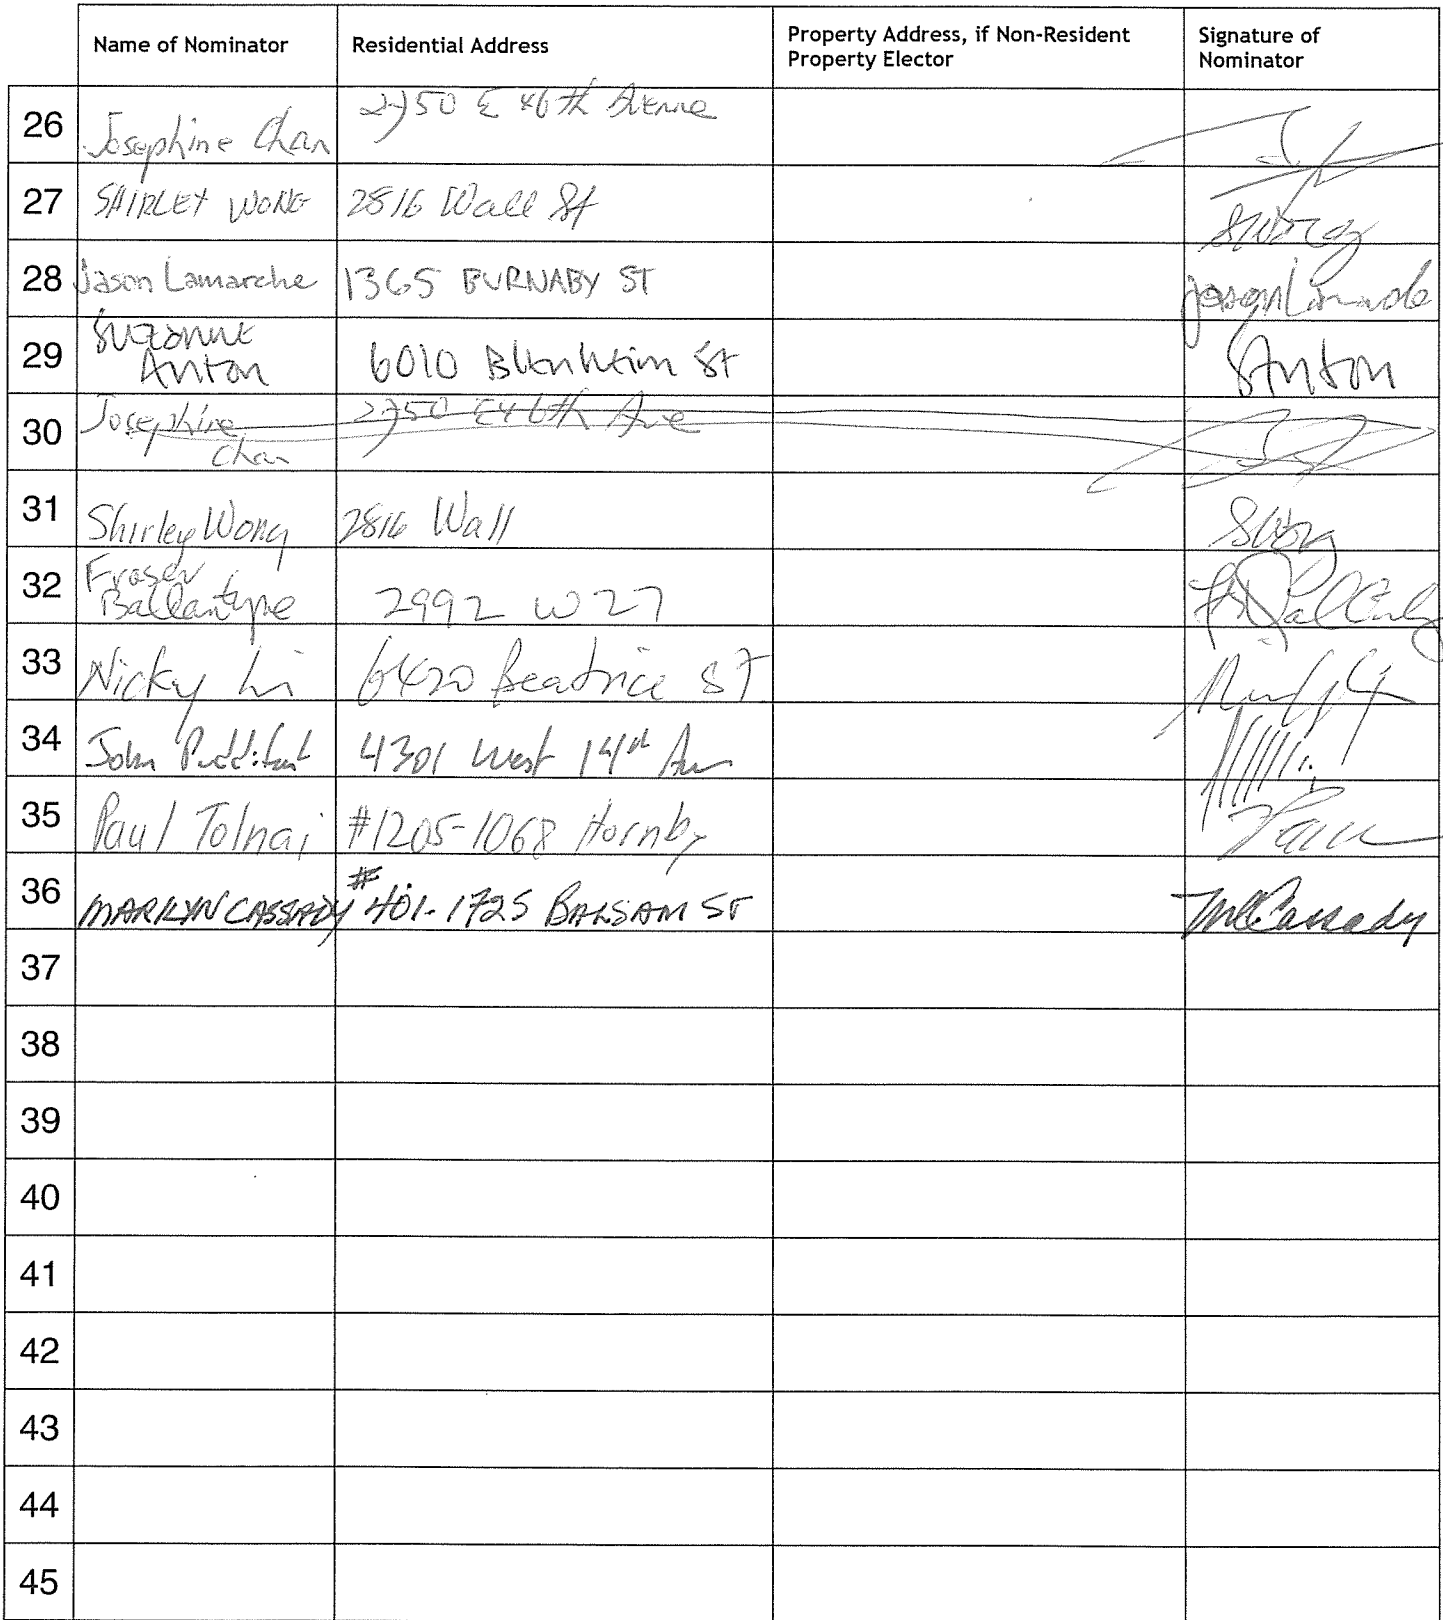 Name of Nominator Residential Address Property Address, if Non-Resident Property Elector Signature of Nominator
26 Josephine Chan 2750 E 46th Avenue
27 SHIRLEY WONG 2816 Wall St
28 Jason Lamarche 1365 BURNABY ST Jason Lamarche
29 Suzanne Anton 6010 Blenheim St SAnton
30 Josephine Chan 2750 E46th Ave
31 Shirley Wong 2816 Wall SWong
32 Fraser Ballantyne 2992 W 27
33 Nicky Li 6420 Beatrice ST
34 John 4301 West 14th Ave
35 Paul Tolnai #1205-1068 Hornby
36 MARILYN CASSADY #401-1725 BALSAM ST MCassady
37
38
39
40
41
42
43
44
45